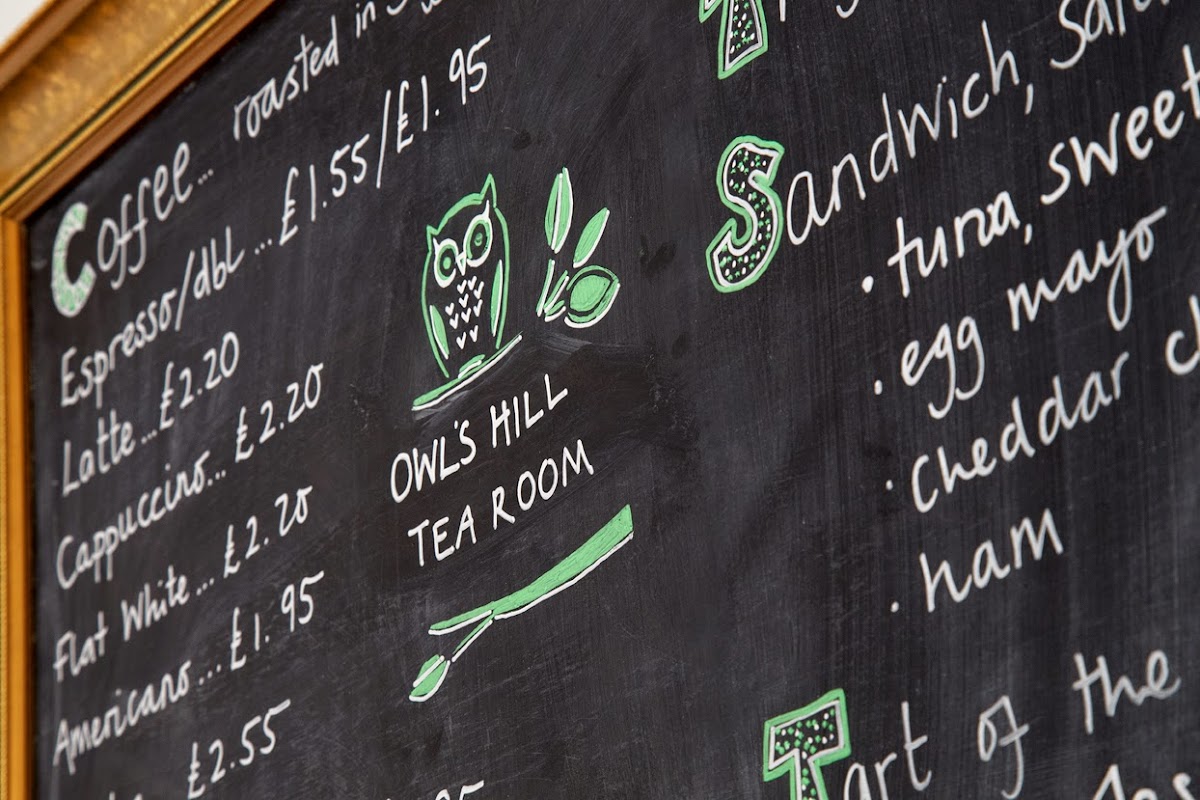 Coffee... roasted in
Espresso/dbl ... £1.55/£1.95
Latte... £2.20
Cappuccino... £2.20
Flat White... £2.20
Americano... £1.95
£2.55
OWL'S HILL
TEA ROOM
Sandwich,
• tuna, sweet
• egg mayo
• cheddar
• ham
Tart of the